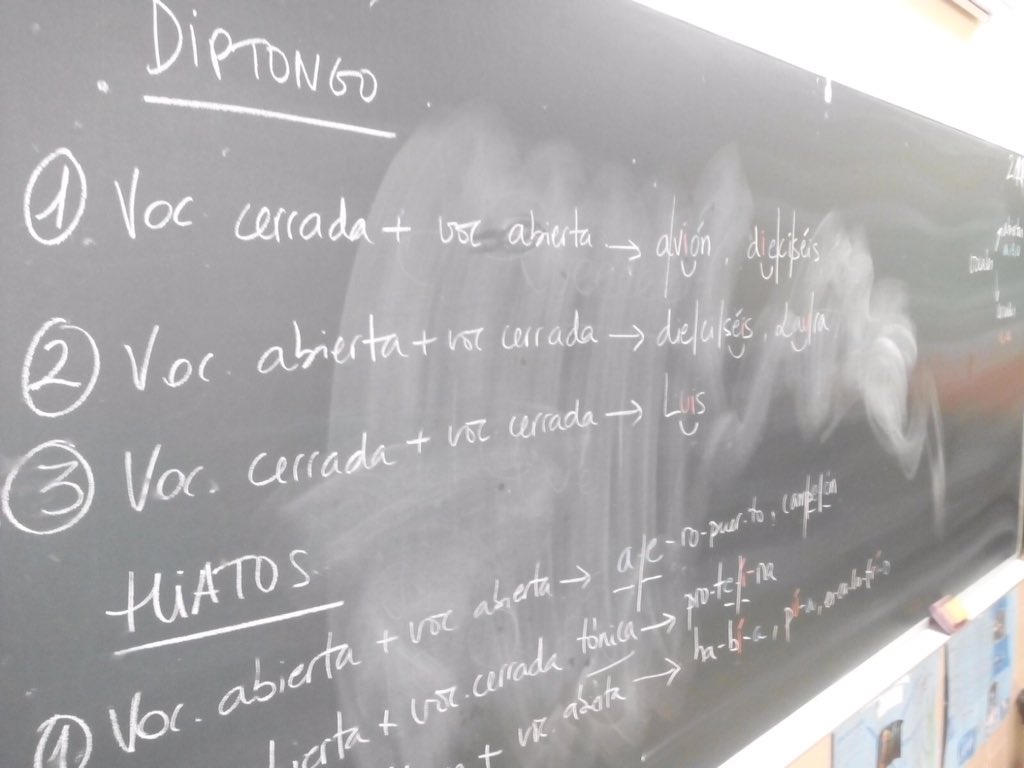 DIPTONGO
① Voc cerrada + voc abierta → a/vión, die/ci/séis
② Voc. abierta + voc cerrada → de/ci/séis, Lau/ra
③ Voc. cerrada + voc cerrada → Luis
HIATOS
① Voc. abierta + voc abierta → a/e-ro-puer-to,
+ voc. cerrada tónica → pro-te-í-na
+ voc. abierta → ha-bí-a,